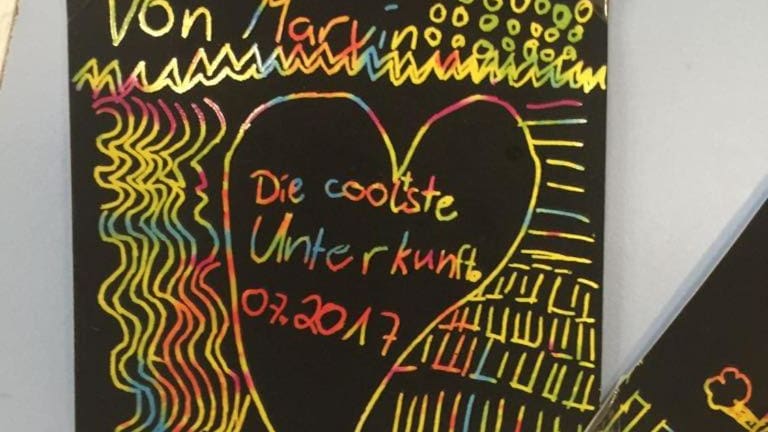 Von Marvin
Die coolste
Unterkunft.
07.2017